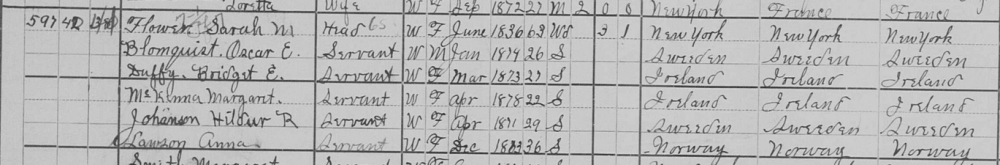 Loretta Wife W F Sep 1872 27 M 2 0 0 New York France France
597 42 Flower Sarah M Head W F June 1836 63 Wd 3 1 New York New York New York
Blomquist, Oscar E. Servant W M Jan 1874 26 S Sweeden Sweeden Sweeden
Duffy, Bridget E. Servant W F Mar 1873 27 S Ireland Ireland Ireland
McKenna Margart. Servant W F Apr 1878 22 S Ireland Ireland Ireland
Johanson Hilbur R Servant W F Apr 1871 29 S Sweeden Sweeden Sweeden
Lawson Anna Servant W F Dec 36 S Norway Norway Norway